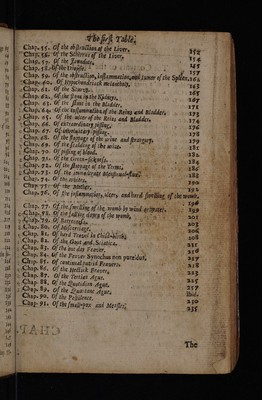 The first Table.
Chap. 55. Of the obstruction of the Liver, 152
Chap. 56. Of the Schirrus of the Liver, 154
Chap. 57. Of the Jaundies, 155
Chap. 58. Of the Dropsie, 157
Chap. 59. Of the obstruction, Inflammation, and tumor of the Spleen, 162
Chap. 60. Of Hypochondriack melancholy, 163
Chap. 61. Of the Scurvy. 165
Chap. 62. Of the stone in the Kidneys, 167
Chap. 63. Of the stone in the Bladder, 171
Chap. 64. Of the inflammation of the Reins and Bladder, 173
Chap. 65. Of the ulcer of the Reins and Bladder, 174
Chap. 66. Of extraordinary pissing, 176
Chap. 67. Of involuntary pissing, 178
Chap. 68. Of the stoppage of the urine and strangury, 179
Chap. 69. Of the scalding of the urine, 181
Chap. 70. Of pissing of blood. 182
Chap. 71. Of the Green-sickness. 184
Chap. 72. Of the stoppage of the Terms, 186
Chap. 73. Of the immoderate Menstrual-flux. 188
Chap. 74. Of the whites, 190
Chap. 75. Of the Mother, 192
Chap. 76. Of the inflammation, ulcer, and hard swelling of the womb,
198
Chap. 77. Of the swelling of the womb by wind or water. 199
Chap. 78. Of the falling down of the womb, 201
Chap. 79. Of Barrenness. 203
Chap. 80. Of Miscarriage, 206
Chap. 81. Of hard Travel in Child-birth, 208
Chap. 82. Of the Gout and Sciatica.
Chap. 83. Of the one day Feaver,
Chap. 84. Of the Feaver Synochus non putridus,
Chap. 85. Of continual putrid Feavers. 218
Chap. 86. Of the Hectick Feaver, 223
Chap. 87. Of the Tertian Ague. 225
Chap. 88. Of the Quotidian Ague, 257
Chap. 89. Of the Quartane Ague, ibid.
Chap. 90. Of the Pestilence. 230
Chap. 91. Of the small-pox and Measles, 235
The